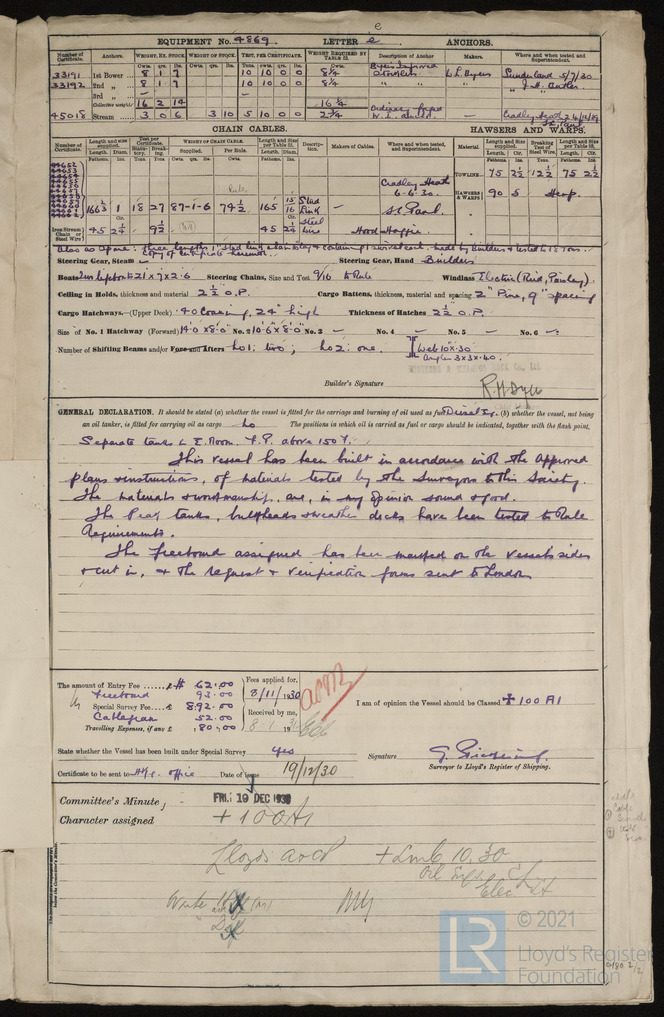 e
EQUIPMENT No. 4869 LETTER e ANCHORS.
Number of Certificate. Anchors. WEIGHT, EX. STOCK WEIGHT OF STOCK. TEST, PER CERTIFICATE. WEIGHT REQUIRED BY TABLE 31. Description of Anchor Makers. Where and when tested and Superintendent.
33191 1st Bower 8 1 7 10 10 0 0 8¼ Byers Improved Stockless W.L. Byers Sunderland 5/7/30
33192 2nd " 8 1 7 10 10 0 0 8¼ " " " J.H. Butler
3rd " —
Collective weight 16 2 14 16¼
45018 Stream 3 0 6 3 10 5 0 0 0 2¾ Ordinary forged W.I. — Cradley Heath
CHAIN CABLES. HAWSERS AND WARPS.
Number of Certificate. Length and size supplied. Test per Certificate. WEIGHT OF CHAIN CABLE. Length and Size per Table 31. Description. Makers of Cables. Where and when tested, and Superintendent. Material. Length and Size supplied. Breaking Test of Steel Wire. Length and Size per Table 31.
TOWLINE 75 2½ 12½ 75 2½
Cradley Heath
6-6-30.
166½ 1 18 27 87-1-6 74½ 165 15/16 Stud Link
HAWSERS & WARPS 90 5 Hemp
Iron Stream Chain or Steel Wire 45 2¼ 9½ 45 2¼ Steel Wire Hood Haggie
Steering Gear, Steam — Steering Gear, Hand Builders
Boats Two lifeboats 21 x 7 x 2.6 Steering Chains, Size and Test 9/16 to Rule Windlass Electric (Reid, Paisley).
Ceiling in Holds, thickness and material 2½ O.P. Cargo Battens, thickness, material and spacing 2" Pine, 9" spacing
Cargo Hatchways.—(Upper Deck) .40 Coaming, 24" high Thickness of Hatches 2½ O.P.
Size of No. 1 Hatchway (Forward) 14.0 x 8.0 No. 2 10.6 x 8.0 No. 3 — No. 4 — No. 5 — No. 6 —
Number of Shifting Beams and/or Fore and Afters No 1: two; No 2: one. Web 10 x .30
Angles 3 x 3 x .40
Builder's Signature
GENERAL DECLARATION. It should be stated (a) whether the vessel is fitted for the carriage and burning of oil used as fuel Diesel Eng. (b) whether the vessel, not being
an oil tanker, is fitted for carrying oil as cargo No The positions in which oil is carried as fuel or cargo should be indicated, together with the flash point.
Separate tanks in E. Room. F.P. above 150 F.
This vessel has been built in accordance with the approved
plans & instructions, of materials tested by the Surveyors to this Society.
The materials & workmanship, are, in my opinion sound & good.
The Peak tanks, bulkheads & weather decks have been tested to Rule
Requirements.
The freeboard assigned has been marked on the vessel's sides
& cut in, & the request & verification forms sent to London
The amount of Entry Fee ...... $ 62.00 Fees applied for,
Freeboard 93.00 8/11/1930
Special Survey Fee ... 892.00 Received by me,
Cablegram 52.00
Travelling Expenses, if any 80.00
I am of opinion the Vessel should be Classed + 100 A1
State whether the Vessel has been built under Special Survey Yes
Signature
Surveyor to Lloyd's Register of Shipping.
Certificate to be sent to H.K. office Date of issue 19/12/30
Committee's Minute FRI. 19 DEC 1930
Character assigned + 100 A1
Lloyd's A & CP + LMC 10.30
Oil Eng
Elec Lt
Write
LR
© 2021
Lloyd's Register
Foundation